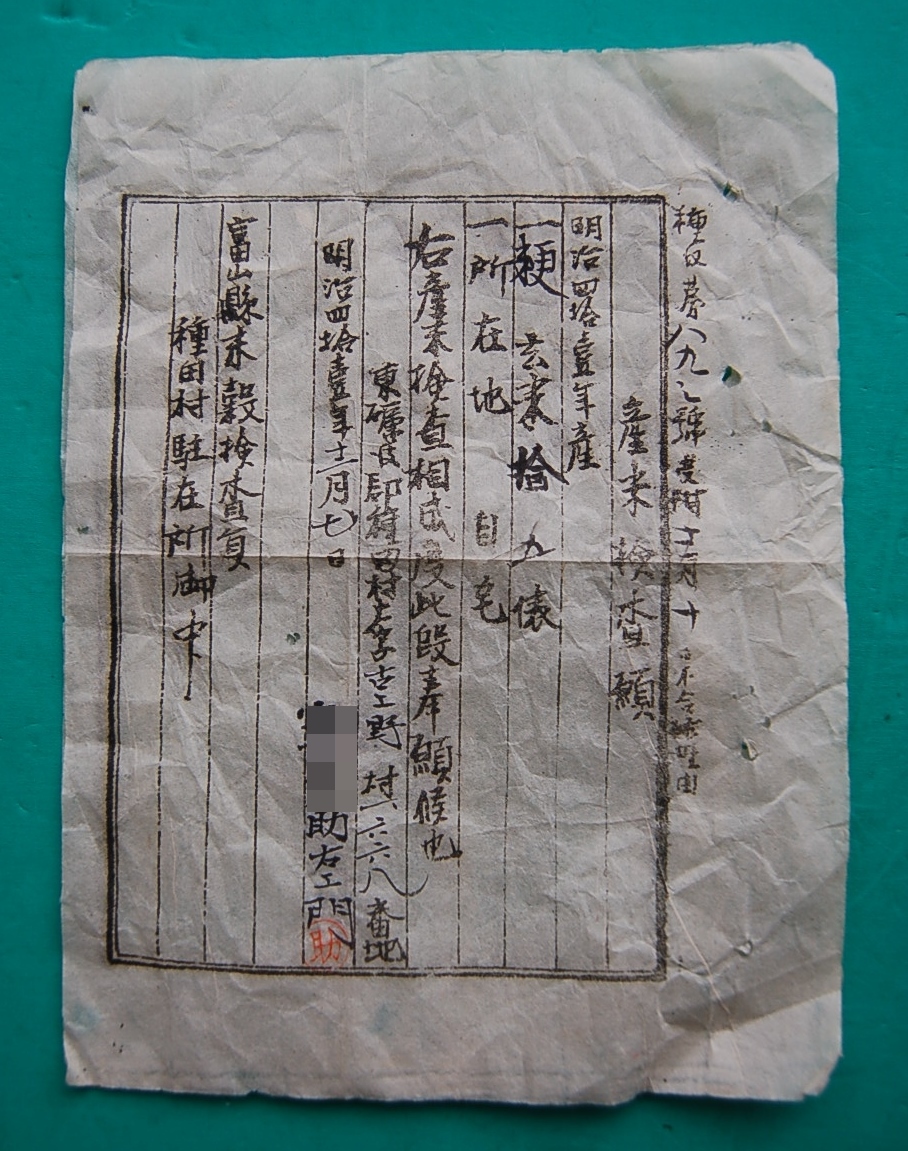 種收第八九之號受附十二月十日不合格理由
產米檢查願
明治四拾壹年產
一粳玄米拾九俵
一所在地 自宅
右產米檢查相成度此段奉願候也
東礪波郡種田村大字古上野村六六八番地
明治四拾壹年十二月七日
助右工門 助
富山縣米穀檢查員
種田村駐在所御中